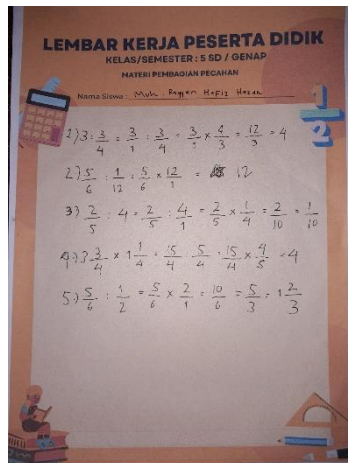 LEMBAR KERJA PESERTA DIDIK
KELAS/SEMESTER : 5 SD / GENAP
MATERI PEMBAGIAN PECAHAN
Nama Siswa : Muh. Rayyan Hafiz
1/2
1) 3 : 3/4 = 3/1 : 3/4 = 3/1 × 4/3 = 12/3 = 4
2) 5/6 : 1/12 = 5/6 × 12/1 = 12
3) 2/5 : 4 = 2/5 : 4/1 = 2/5 × 1/4 = 2/10 = 1/10
4) 3 3/4 × 1 1/4 = 15/4 . 5/4 = 15/4 × 4/5 = 4
5) 5/6 : 1/2 = 5/6 × 2/1 = 10/6 = 5/3 = 1 2/3